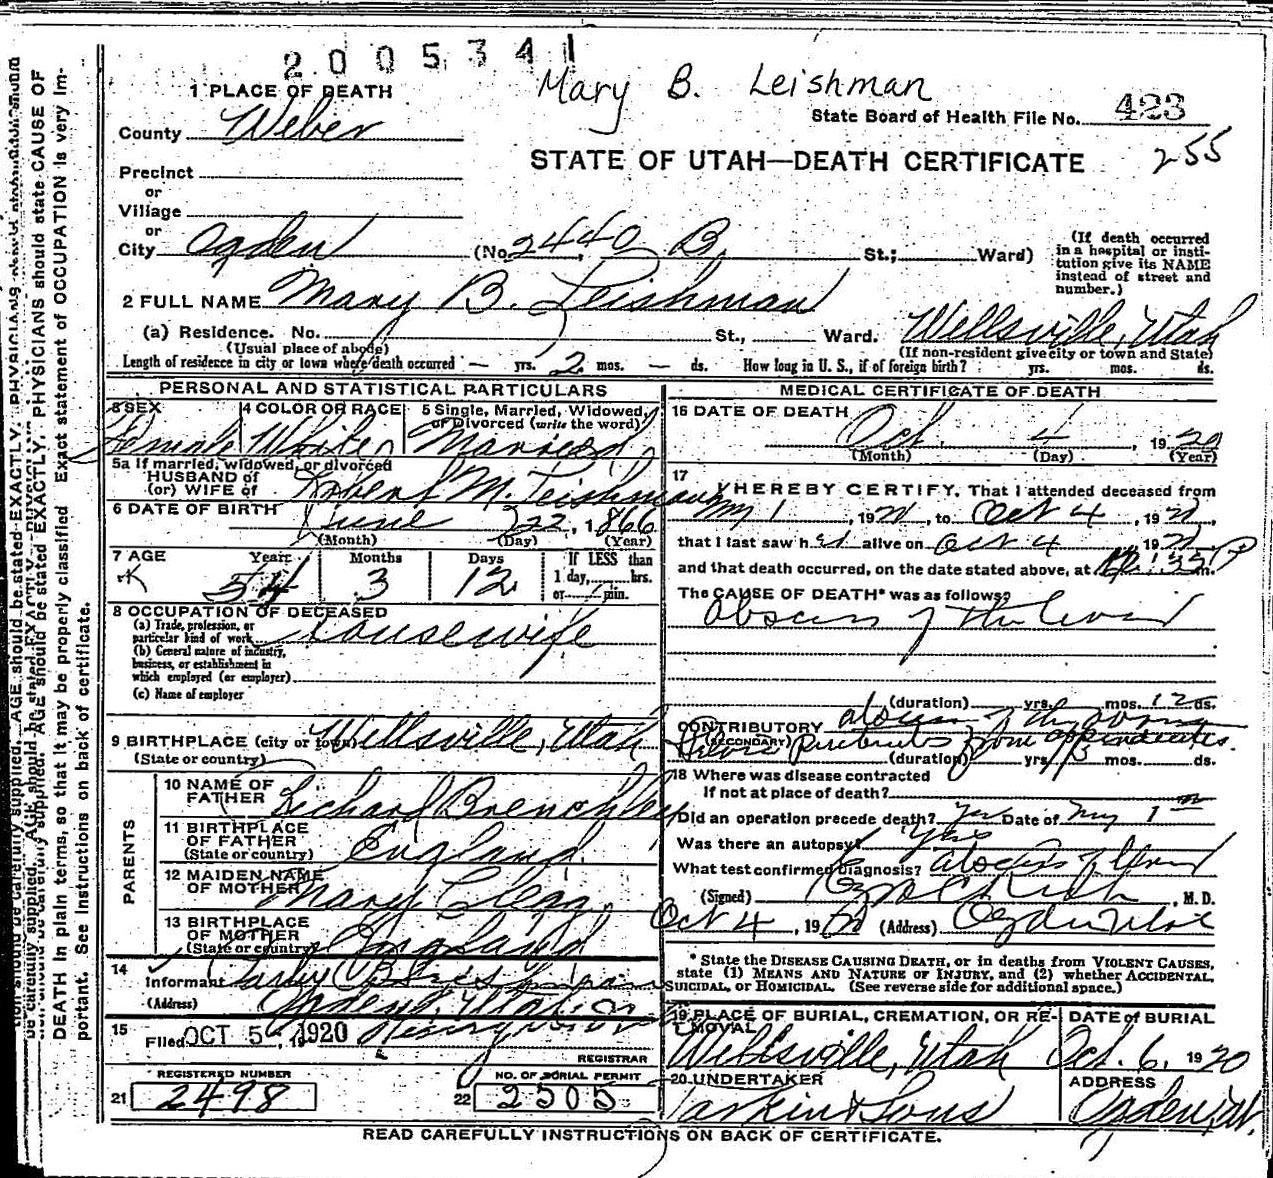 2005341
Mary B. Leishman
1 PLACE OF DEATH
County Weber
State Board of Health File No. 423
255
STATE OF UTAH—DEATH CERTIFICATE
Precinct
or
Village
or
City Ogden (No. 2440 B St.; Ward)
(If death occurred in a hospital or insti-
tution give its NAME
instead of street and
number.)
2 FULL NAME Mary B. Leishman
(a) Residence. No. St., Ward. Wellsville, Utah
(Usual place of abode) (If non-resident give city or town and State)
Length of residence in city or town where death occurred — yrs. 2 mos. — ds. How long in U. S., if of foreign birth? yrs. mos. ds.
PERSONAL AND STATISTICAL PARTICULARS
3 SEX Female
4 COLOR OR RACE White
5 Single, Married, Widowed, or Divorced (write the word) Married
5a If married, widowed, or divorced
HUSBAND of
(or) WIFE of Robert M. Leishman
6 DATE OF BIRTH June 22, 1866
(Month) (Day) (Year)
7 AGE Years 54 Months 3 Days 12 If LESS than
1 day, hrs.
or min.
8 OCCUPATION OF DECEASED
(a) Trade, profession, or
particular kind of work Housewife
(b) General nature of industry,
business, or establishment in
which employed (or employer)
(c) Name of employer
9 BIRTHPLACE (city or town) Wellsville, Utah
(State or country)
PARENTS
10 NAME OF
FATHER Richard Brenchley
11 BIRTHPLACE
OF FATHER England
(State or country)
12 MAIDEN NAME
OF MOTHER Mary Clegg
13 BIRTHPLACE
OF MOTHER England
(State or country)
14
Informant
(Address) Ogden, Utah
15
Filed OCT 5 1920 Henry
REGISTRAR
REGISTERED NUMBER
21 2498
NO. OF BURIAL PERMIT
22 2505
MEDICAL CERTIFICATE OF DEATH
16 DATE OF DEATH Oct. 4, 1920
(Month) (Day) (Year)
17
I HEREBY CERTIFY, That I attended deceased from
My 1, 1920, to Oct 4, 1920,
that I last saw her alive on Oct 4, 1920,
and that death occurred, on the date stated above, at m.
The CAUSE OF DEATH* was as follows:
abscess of the liver
(duration) yrs. mos. 12 ds.
CONTRIBUTORY abscess of the
(SECONDARY) from appendicitis.
(duration) yrs. mos. ds.
18 Where was disease contracted
If not at place of death?
Did an operation precede death? Yes Date of My 1
Was there an autopsy? Yes
What test confirmed diagnosis? abscess of liver
(Signed) , M. D.
Oct 4, 1920 (Address) Ogden Utah
* State the DISEASE CAUSING DEATH, or in deaths from VIOLENT CAUSES,
state (1) MEANS AND NATURE OF INJURY, and (2) whether ACCIDENTAL,
SUICIDAL, or HOMICIDAL. (See reverse side for additional space.)
19 PLACE OF BURIAL, CREMATION, OR RE-
MOVAL
Wellsville, Utah
DATE of BURIAL
Oct. 6, 1920
20 UNDERTAKER
Larkin & Sons
ADDRESS
Ogden, Ut.
READ CAREFULLY INSTRUCTIONS ON BACK OF CERTIFICATE.
be carefully supplied. AGE should be stated EXACTLY. PHYSICIANS should state CAUSE OF
DEATH in plain terms, so that it may be properly classified. Exact statement of OCCUPATION is very im-
portant. See instructions on back of certificate.